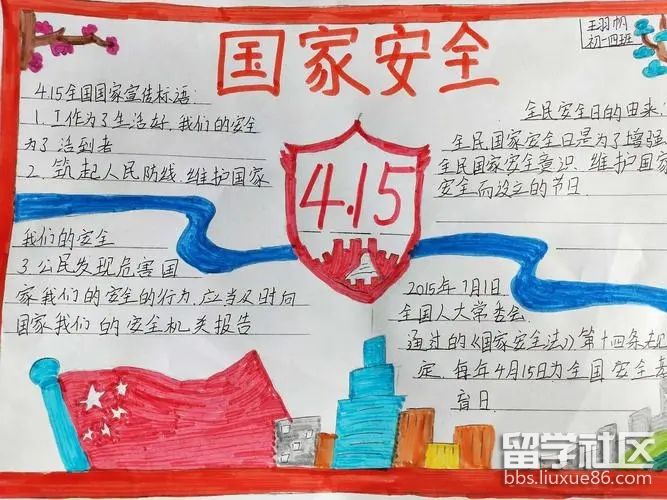 国家安全
王羽帆
初一四班
4.15全国国家宣传标语:
1.工作为了生活好,我们的安全
为了活到老
2.筑起人民防线.维护国家
我们的安全
3.公民发现危害国
家我们的安全的行为,应当及时向
国家我们的安全机关报告
4.15
全民安全日的由来:
全民国家安全日是为了增强
全民国家安全意识.维护国家
安全而设立的节日.
2015年7月1日
全国人大常委会.
通过的《国家安全法》第十四条规
定.每年4月15日为全国安全
育日.
留学社区
bbs.liuxue86.com